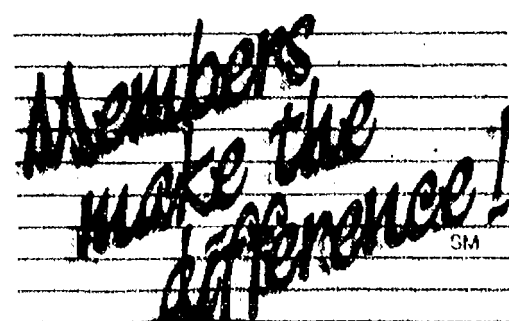 Members
make the
difference!
SM